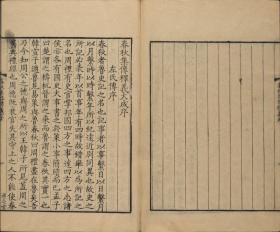 春秋集傳釋義大成序
左氏傳序
春秋者魯史記之名也記事者以事繫日以日繫月
以月繫時以時繫年所以紀遠近別同異也故史之
所記必表年以首事年有四時故錯舉以為所記之
名也周禮有史官掌邦國四方之事達四方之志諸
侯亦各有國史大事書之於策小事簡牘而已孟子
曰楚謂之檮杌晉謂之乘而魯謂之春秋其實一也
韓宣子適魯見易象與魯春秋曰周禮盡在魯矣吾
乃今知周公之德與周之所以王韓子所見蓋周之
舊典禮經也周德既衰官失其守上之人不能使春